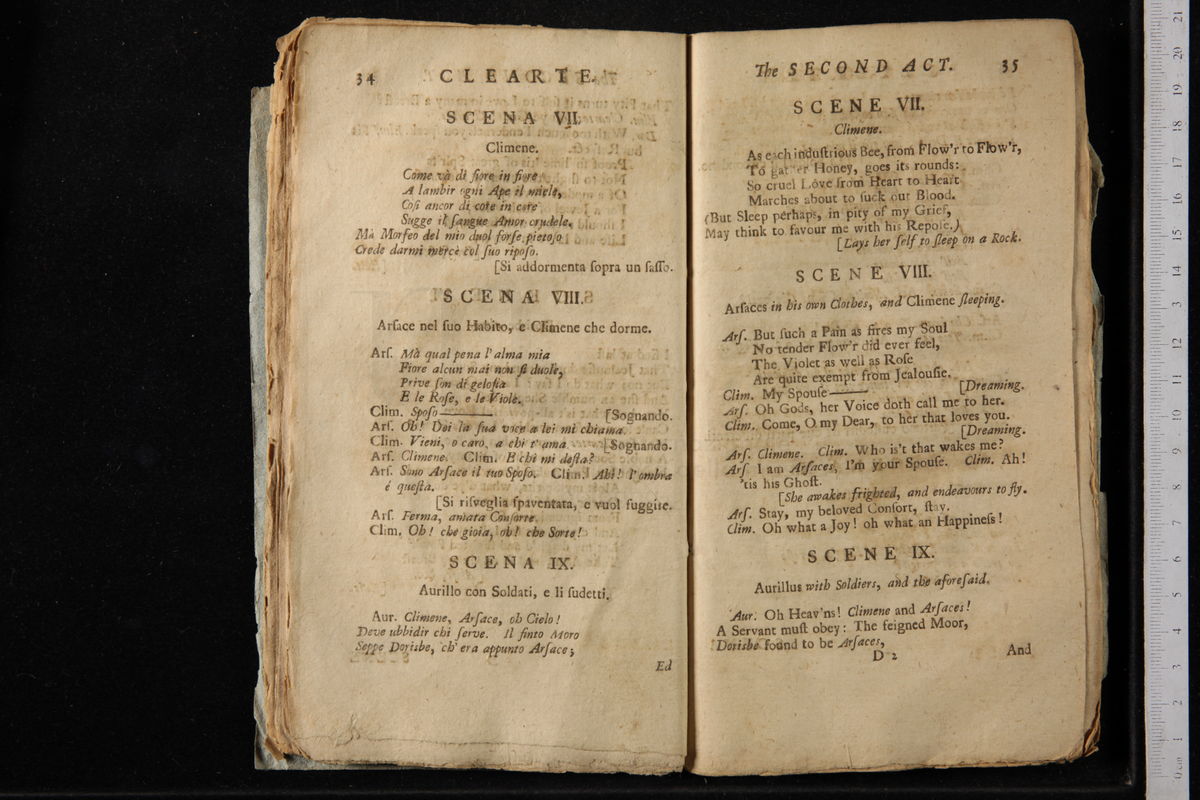 34 CLEARTE.
SCENA VII.
Climene.
Come và di fiore in fiore
A lambir ogni Ape il miele,
Coſi ancor di core in core
Sugge il ſangue Amor crudele.
Mà Morfeo del mio duol forſe pietoſo
Crede darmi mercè col ſuo ripoſo.
[Si addormenta ſopra un ſaſſo.
SCENA VIII.
Arſace nel ſuo Habito, e Climene che dorme.
Arſ. Mà qual pena l'alma mia
Fiore alcun mai non ſi duole,
Prive ſon di geloſia
E le Roſe, e le Viole.
Clim. Spoſo——— [Sognando.
Arſ. Oh! Dei la ſua voce a lei mi chiama.
Clim. Vieni, o caro, a chi t'ama. [Sognando.
Arſ. Climene. Clim. E chi mi deſta?
Arſ. Sono Arſace il tuo Spoſo. Clim. Ahi! l'ombra
é queſta.
[Si riſveglia ſpaventata, e vuol fuggire.
Arſ. Ferma, amata Conſorte.
Clim. Oh! che gioia, oh! che Sorte!
SCENA IX.
Aurillo con Soldati, e li ſudetti.
Aur. Climene, Arſace, oh Cielo!
Deve ubbidir chi ſerve. Il finto Moro
Seppe Dorisbe, ch'era appunto Arſace;
Ed
The SECOND ACT. 35
SCENE VII.
Climene.
As each induſtrious Bee, from Flow'r to Flow'r,
To gather Honey, goes its rounds:
So cruel Love from Heart to Heart
Marches about to ſuck our Blood.
(But Sleep perhaps, in pity of my Grief,
May think to favour me with his Repoſe.)
[Lays her ſelf to ſleep on a Rock.
SCENE VIII.
Arſaces in his own Clothes, and Climene ſleeping.
Arſ. But ſuch a Pain as fires my Soul
No tender Flow'r did ever feel,
The Violet as well as Roſe
Are quite exempt from Jealouſie.
Clim. My Spouſe——— [Dreaming.
Arſ. Oh Gods, her Voice doth call me to her.
Clim. Come, O my Dear, to her that loves you.
[Dreaming.
Arſ. Climene. Clim. Who is't that wakes me?
Arſ. I am Arſaces, I'm your Spouſe. Clim. Ah!
'tis his Ghoſt.
[She awakes frighted, and endeavours to fly.
Arſ. Stay, my beloved Conſort, ſtay.
Clim. Oh what a Joy! oh what an Happineſs!
SCENE IX.
Aurillus with Soldiers, and the aforeſaid.
Aur. Oh Heav'ns! Climene and Arſaces!
A Servant muſt obey: The feigned Moor,
Dorisbe found to be Arſaces,
D 2 And